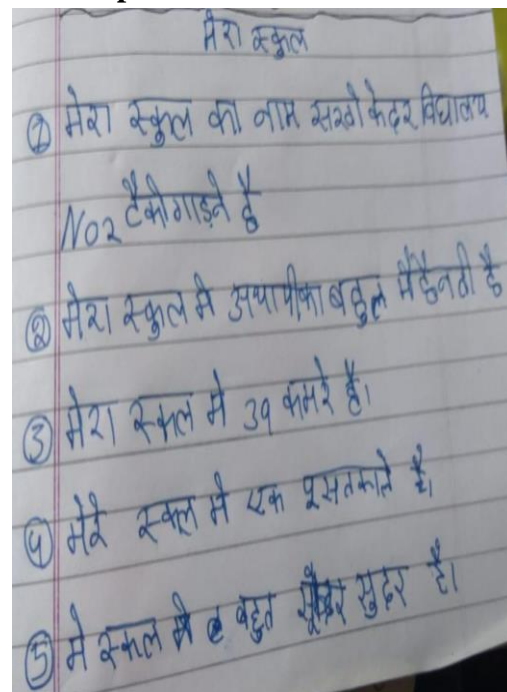 मेरा स्कुल
① मेरा स्कुल का नाम केदर विद्यालय
No2 टैकोगाड़ने है
② मेरा स्कुल मे अथापीका बहुल मैहैनती है
③ मेरा स्कल मे 39 कमरे है।
④ मेरे स्कूल मे एक पूसतकाते है।
⑤ मे स्कल मे बहुत सुदर है।